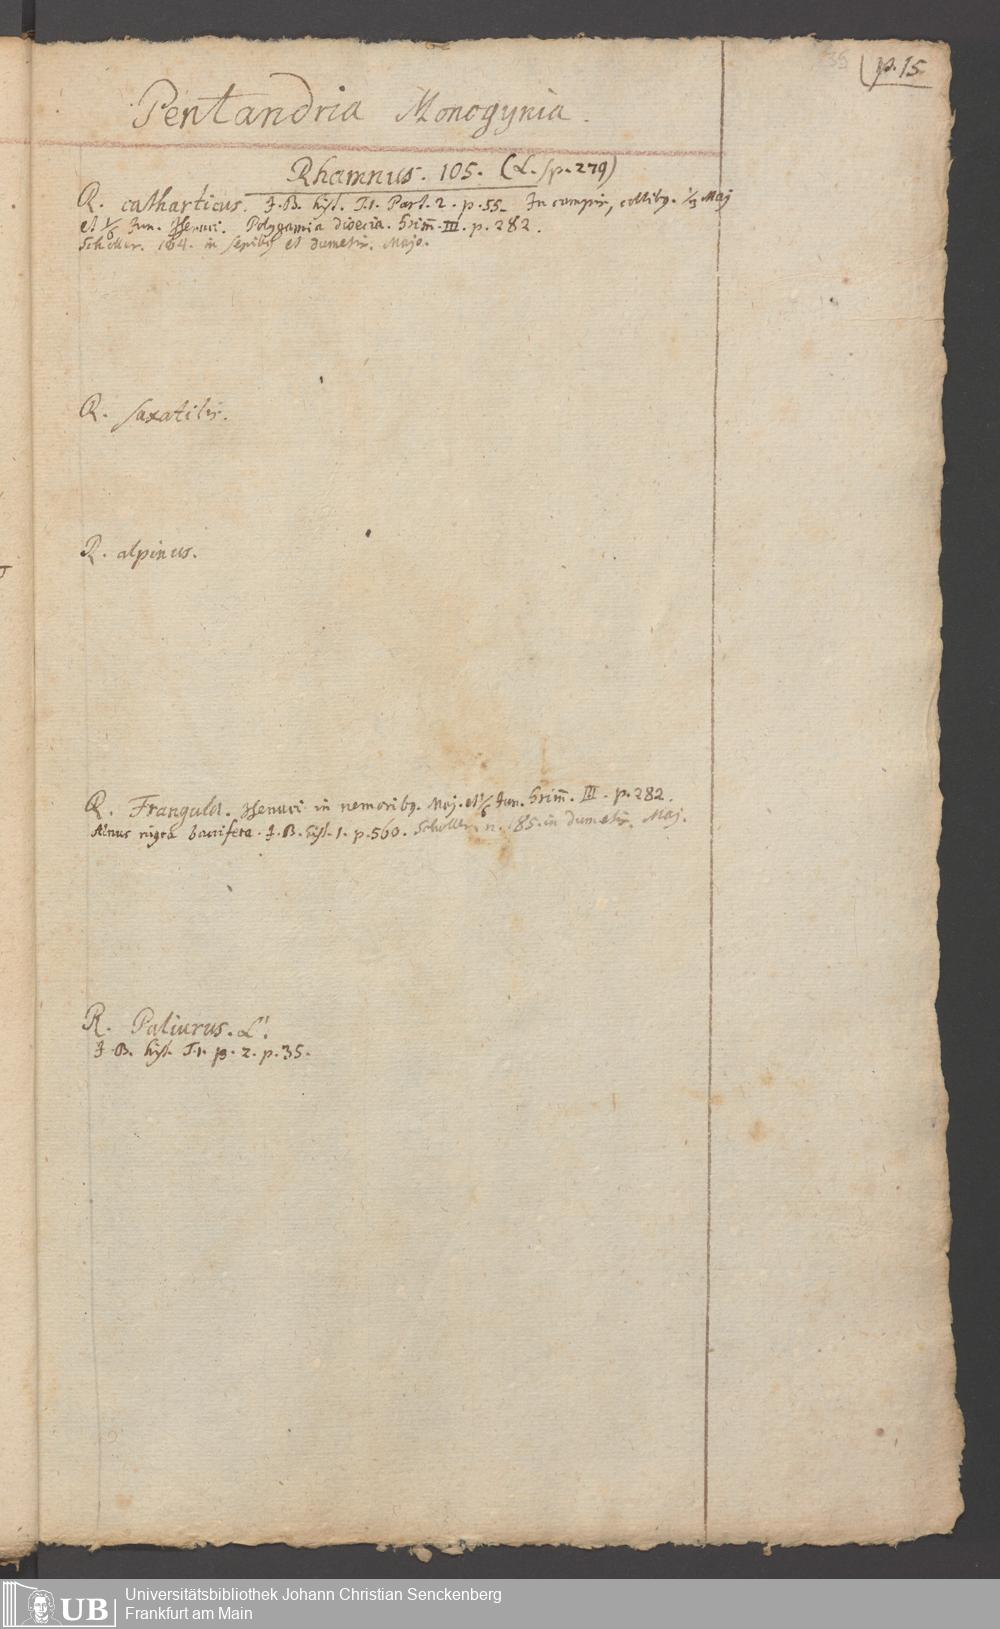 35 p. 15.
Pentandria Monogynia.
Rhamnus. 105. (L. sp. 279)
R. catharticus. J. B. hist. T. 1. Part. 2. p. 55. In campis, collibq. Maj
et Jun. Isenaci. Polygamia dioecia. Grim̄. III. p. 282.
Scholler. 184. in sepibq et dumetis. Majo.
R. saxatilis.
R. alpinus.
R. Frangula. Isenaci in nemoribq. Maj. et Jun. Grim̄. III. p. 282.
Alnus nigra baccifera. J. B. hist. 1. p. 560. Scholler. n. 185. in dumetis. Maj.
R. Paliurus. L!
J. B. hist. T. 1. p. 2. p. 35.
UB Universitätsbibliothek Johann Christian Senckenberg
Frankfurt am Main